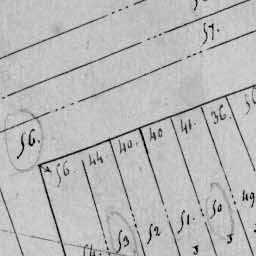 57.
56.
56 44 40. 40 41. 36.
53 52 51. 50 49